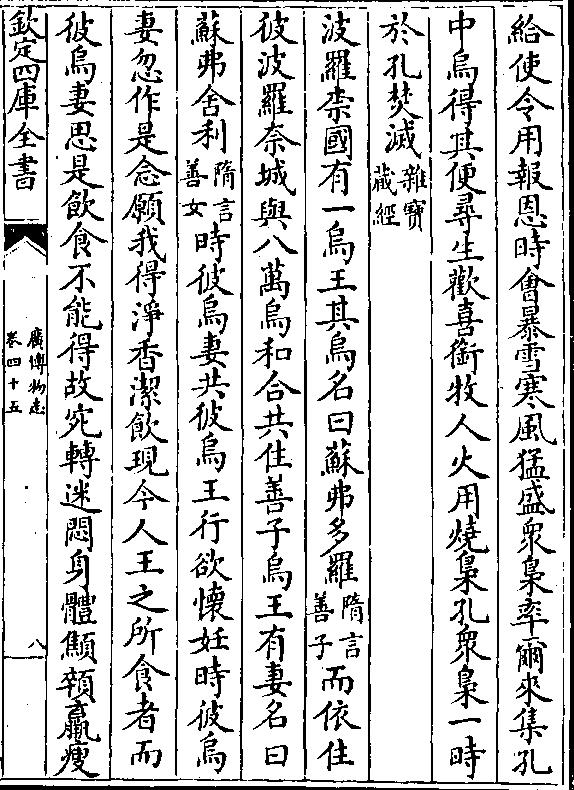 給使令用報恩時㑹暴雪寒風猛盛衆梟率爾來集孔
中烏得其便尋生歡喜銜牧人火用燒梟孔衆梟一時
於孔焚滅雜寶藏經
波羅柰國有一烏王其烏名曰蘇弗多羅隋言善子而依住
彼波羅奈城與八萬烏和合共住善子烏王有妻名曰
蘇弗舍利隋言善女時彼烏妻共彼烏王行欲懷妊時彼烏
妻忽作是念願我得淨香潔飲現今人王之所食者而
彼烏妻思是飲食不能得故宛轉迷悶身體顦顇羸瘦
欽定四庫全書
廣博物志
卷四十五
八